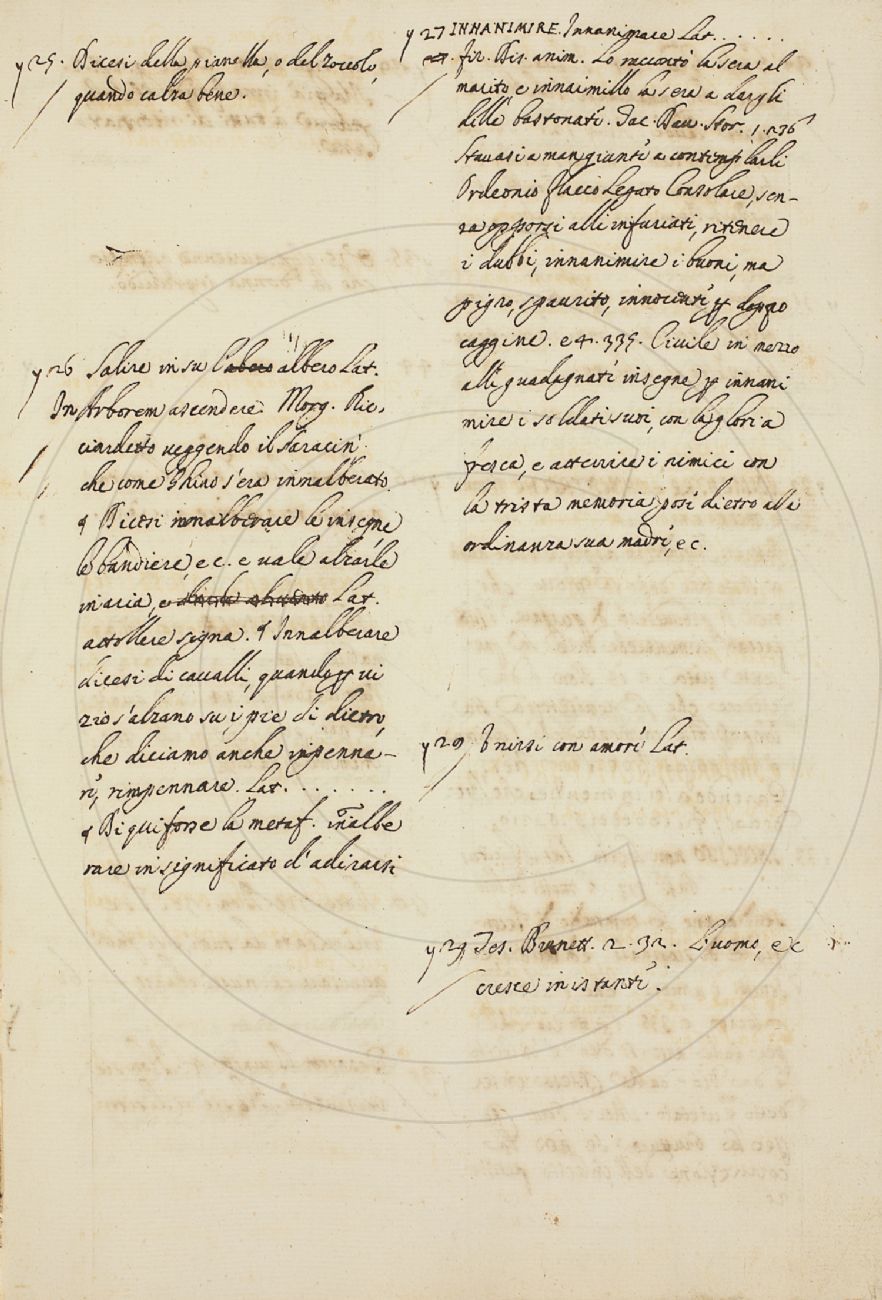 y 25. Dicesi della pianella, o del zoccolo,
quando calza bene.
y 26 Salire in su l'abero albero Lat.
In Arborem ascendere. Morg. Ric,
ciardetto veggendo il saracin'
che come Ghiro s'era innalberato.
¶ Dicesi innalberare le insegne
le bandiere, e c. e vale alzarle
in aria, e Lat.
attollere signa. ¶ Innalberare
dicesi di cavalli, quando ꝑ vi
zio s'alzano su, i piè di dietro,
che diciamo anche inpenna-
rsi, rimpennare. Lat. . . . . . . .
¶ Di qui forse la metaf. innalbe
rare in significato d'adirarsi
y 27 INNANIMIRE. Innanimare Lat. . . . . . .
Fir. Dis. anim. Lo raccontò la sera al
marito, e innanimillo la sera a dargli
delle bastonate. Tac. Dav. Stor. 1. 276
Stavasi a man giunte a contemplarli
Ordeonio Flacco Legato Consolare, sen-
za opporsi alli infuriati, ritenere
i dubbi, innanimire i buoni, ma
pigro, spaurito, innocente ꝑ dappo
caggine. e 4. 335. Civile in mezzo
alle guadagnate insegne ꝑ innani
mire i soldati suoi, con la gloria
fresca, e atterrire i nimici con
la trista memoria, pose dietro alla
ordinanza sua madre, e c.
y 29 Unirsi con amore Lat.
y 29 Tes. Brunett. 2. 32. L'uomo, e c
cresce in istante.